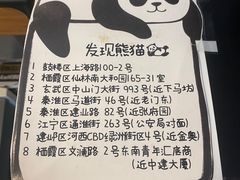 发现熊猫
1 鼓楼区上海路100-2号
2 栖霞区仙林南大和园65-31室
3 玄武区中山门大街993号(近下马坊)
4 秦淮区马道街46号(近老门东)
5 秦淮区建邺路82号(近张府园)
6 江宁区通淮街263号(公安局对面)
7 建邺区河西CBD绿洲街4号(近金奥)
8 栖霞区文澜路2号东南青年汇店商
(近中建大厦)